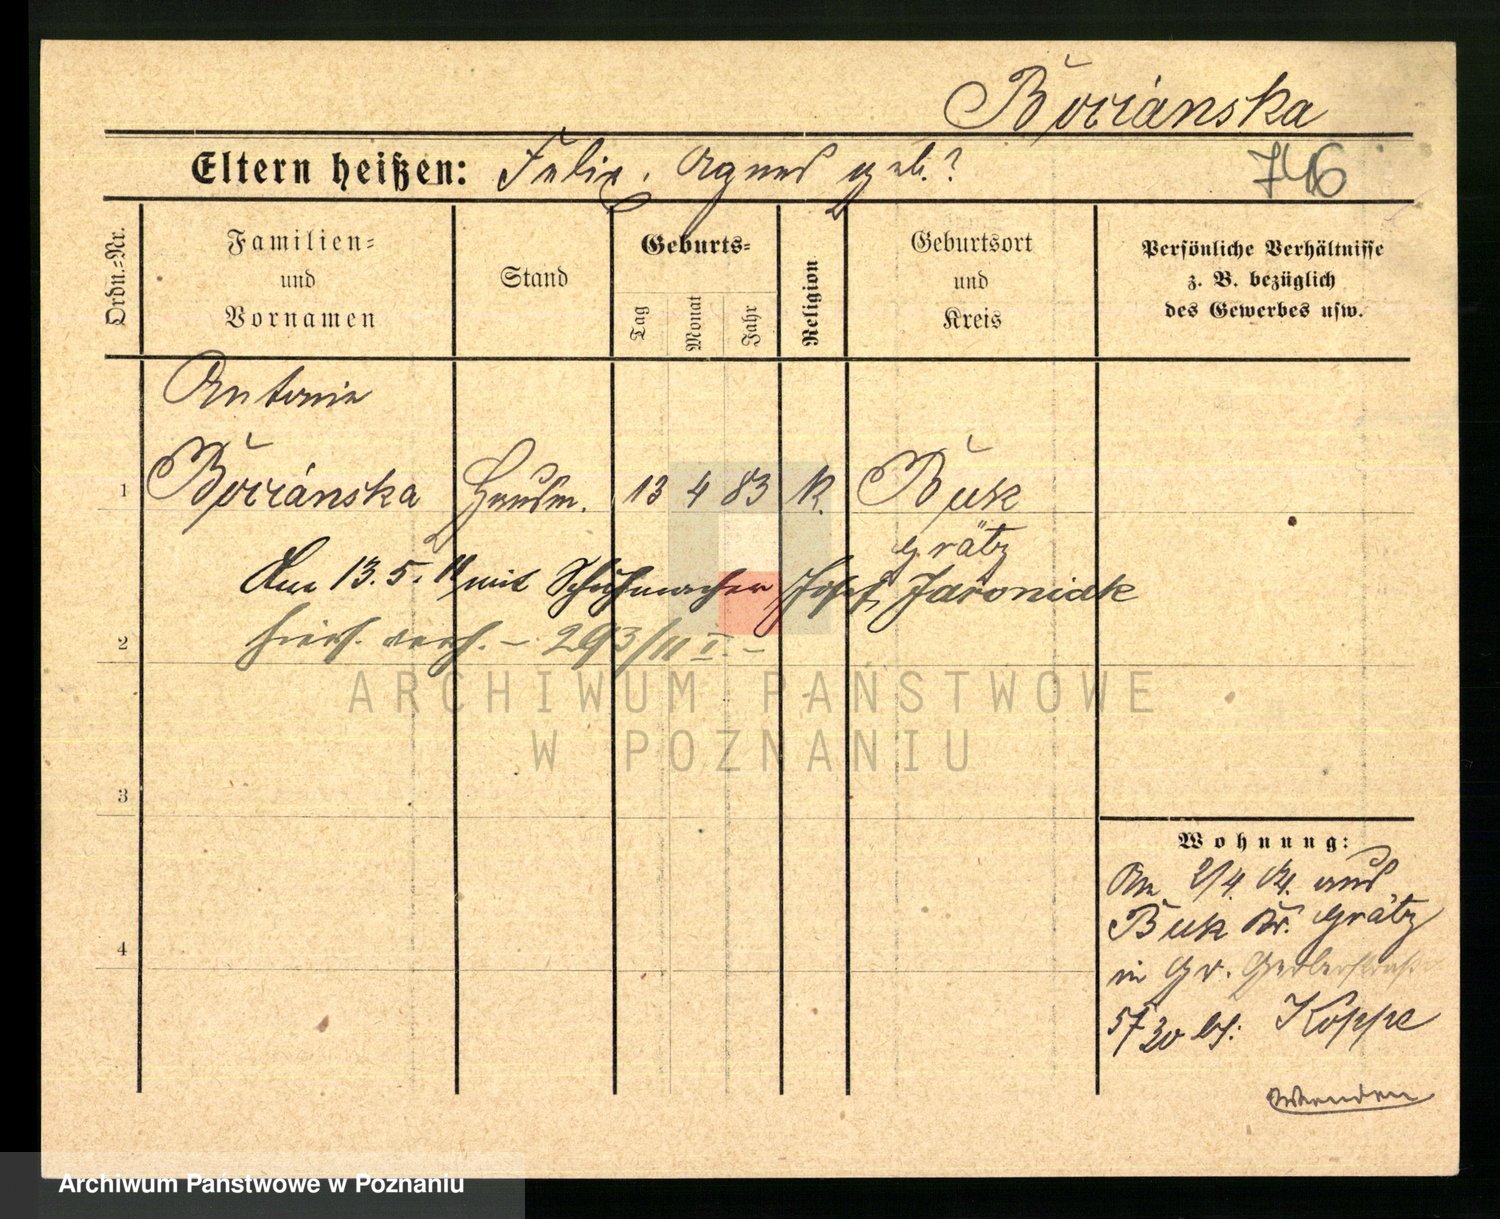 Bociánska
Eltern heißen: Felix, Agnes geb. ?
746
Ordn.-Nr.
Familien-
und
Vornamen
Stand
Geburts-
Tag
Monat
Jahr
Religion
Geburtsort
und
Kreis
Persönliche Verhältnisse
z. B. bezüglich
des Gewerbes usw.
Antonie
1 Bociánska Hausm. 13 4 83 K. Buk
Grätz
Am 13.5.11 mit Schuhmacher Josef Jaroniak
2 hiers. verh. – 293/11 I –
ARCHIWUM PAŃSTWOWE
W POZNANIU
3
4
Wohnung:
Am 2/4. 04. aus
Buk Kr. Grätz
in Gr. Gerberstraße
bei Koppe
Wenden
Archiwum Państwowe w Poznaniu